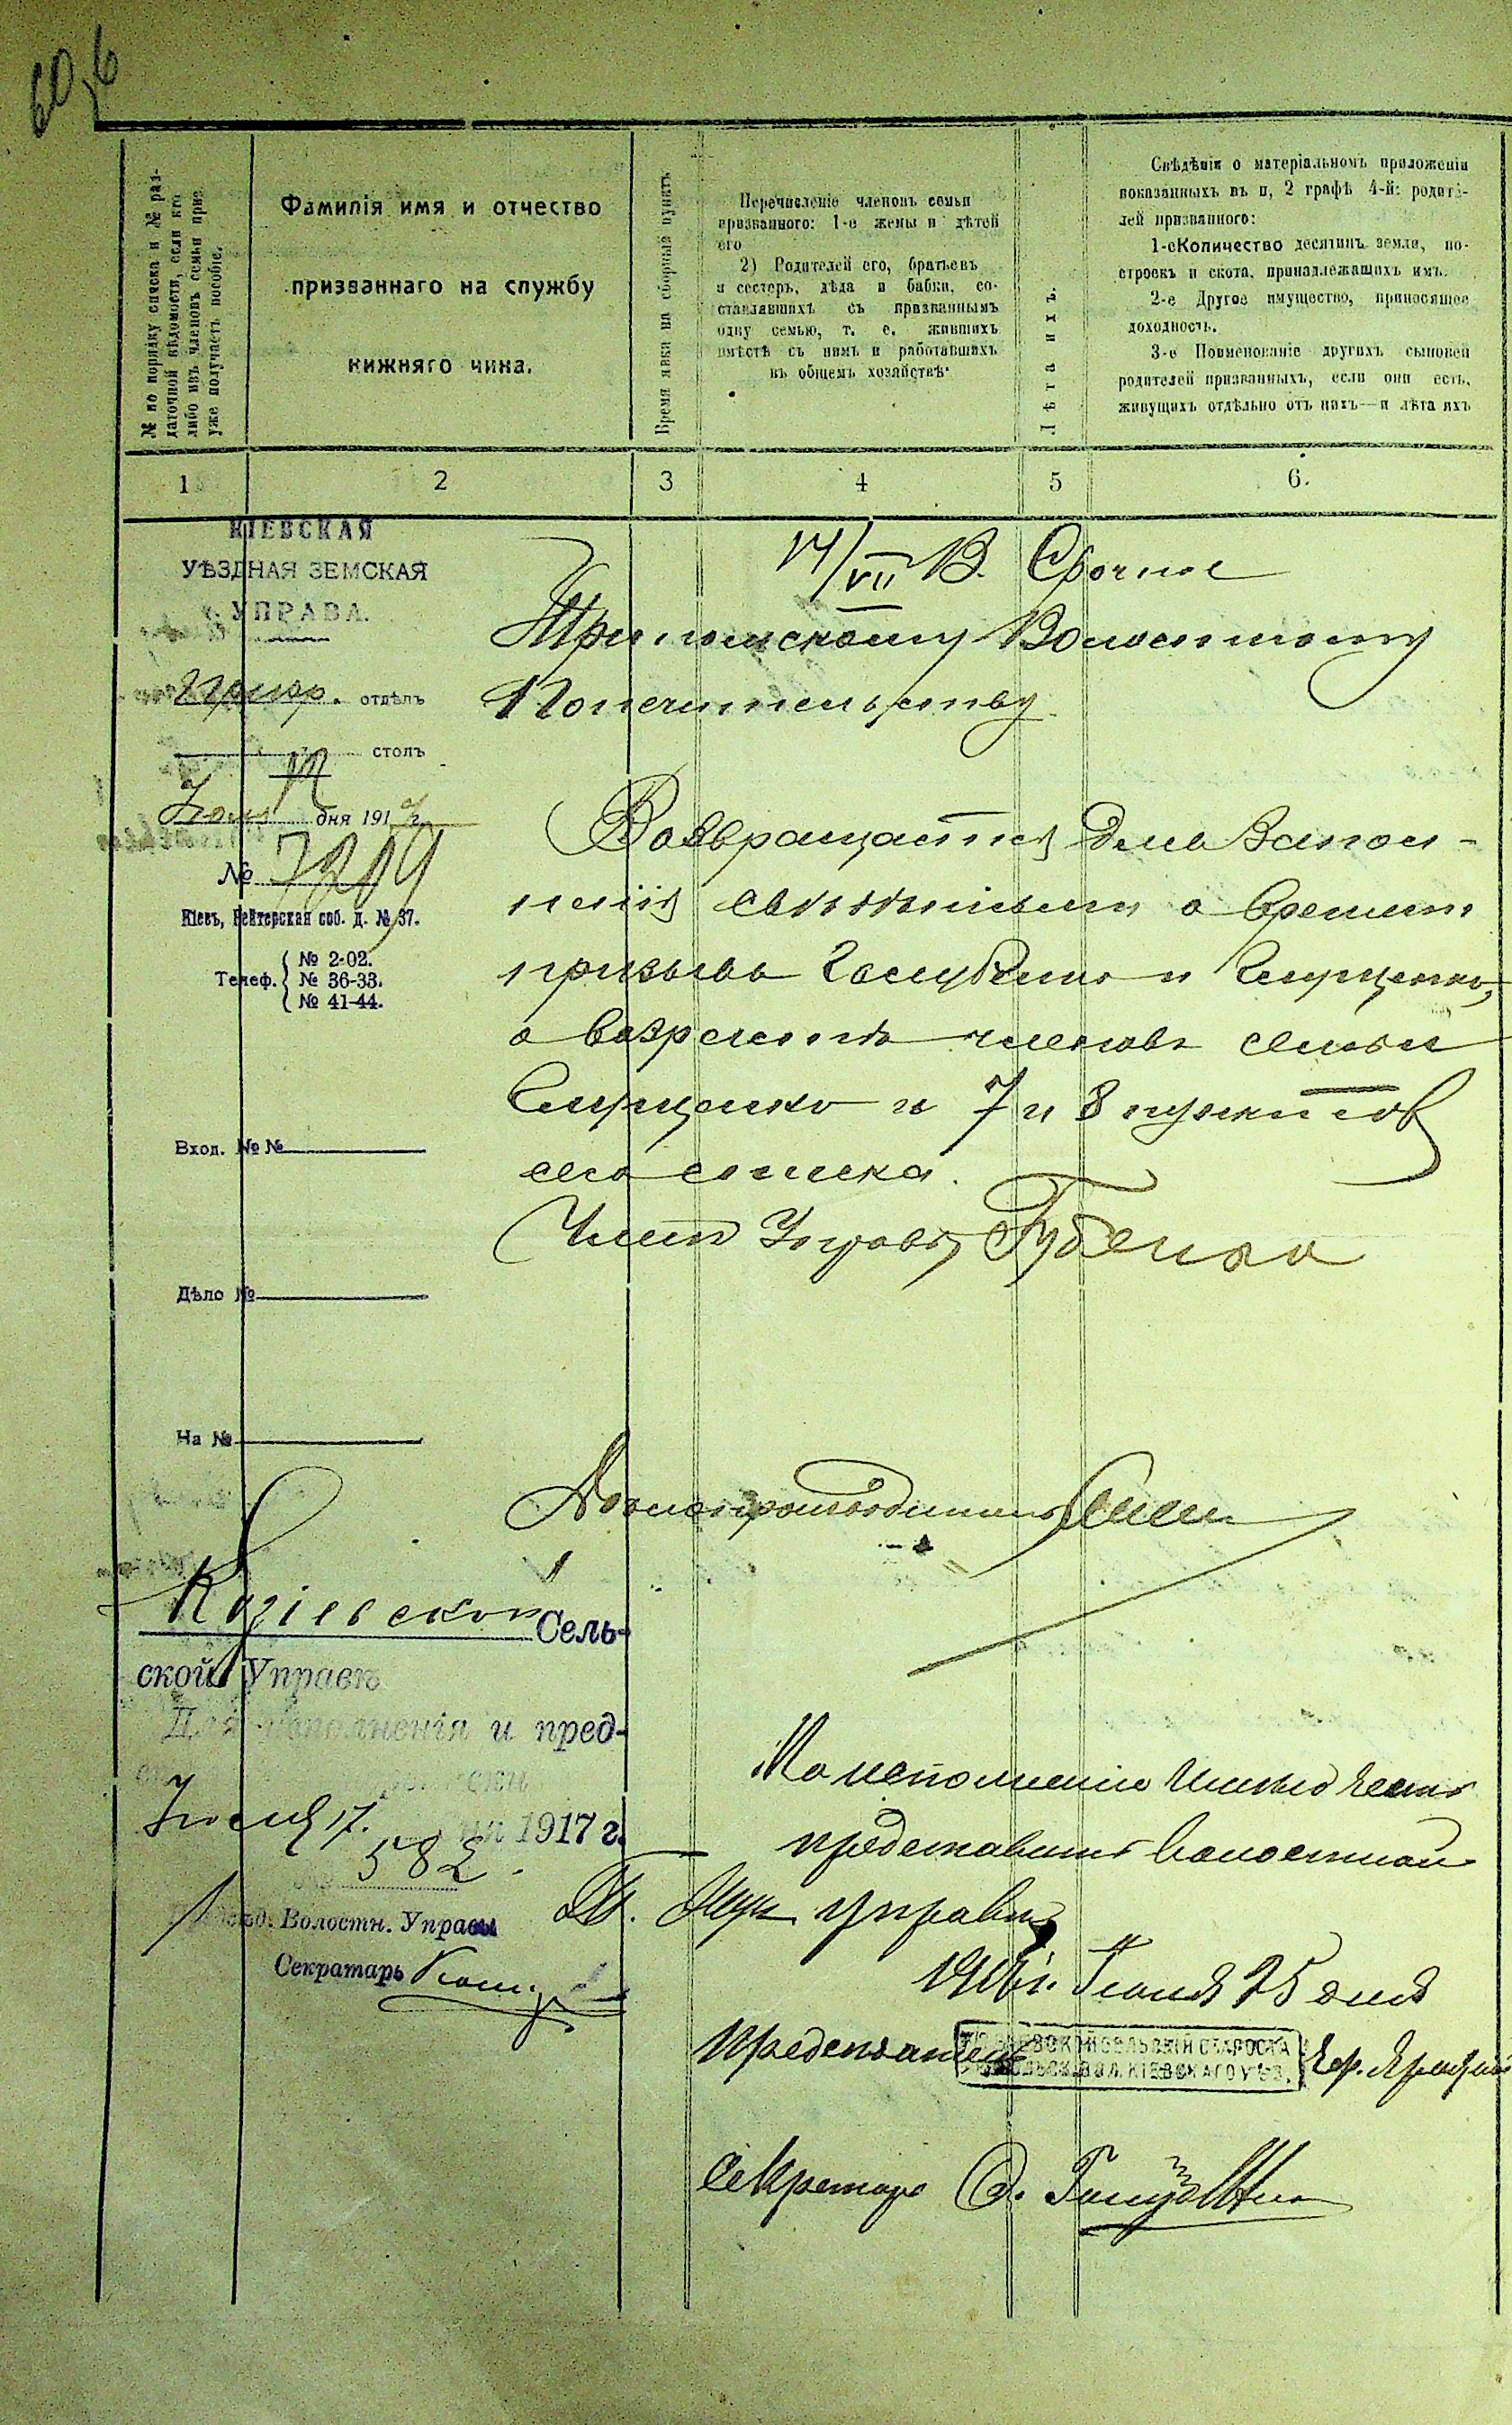 № по порядку списка и № раз-
даточной вѣдомости, если кто
либо изъ членовъ семьи приз
уже получаетъ пособіе.
Фамилія имя и отчество
призваннаго на службу
нижняго чина.
Время явки на сборный пунктъ
Перечисленіе членовъ семьи
призванного: 1-е жены и дѣтей
его
2) Родителей его, братьевъ
и сестеръ, дѣда и бабки, со-
ставлявшихъ съ призваннымъ
одну семью, т. е. жившихъ
вмѣстѣ съ нимъ и работавшихъ
въ общемъ хозяйствѣ
Лѣта ихъ.
Свѣдѣнія о матеріальномъ приложеніи
показанныхъ въ п, 2 графѣ 4-й: родите-
лей призванного:
1-е Количество десятинъ земли, по-
строекъ и скота, принадлежащихъ имъ.
2-е Другое имущество, приносящее
доходность.
3-е Поименованіе другихъ сыновей
родителей призванныхъ, если они есть,
живущихъ отдѣльно отъ нихъ—и лѣта ихъ
1 2 3 4 5 6.
КІЕВСКАЯ
УѢЗДНАЯ ЗЕМСКАЯ
УПРАВА.
отдѣлъ
столъ
дня 191 г.
№ 7209
Кіевъ, Рейтерская соб. д. № 37.
Телеф. № 2-02.
№ 36-33.
№ 41-44.
Вход. №№
Дѣло №
На №
17/VII В. Срочное
Трипольскому Волостному
Попечительству
Возвращается для запол-
ненія свѣдѣніями о времени
призыва Голубенко и Слуценко,
о возрастѣ членовъ семьи
Слуценко и 7 и 8 пунктов
его списка.
Членъ Управы Губенко
Дѣлопроизводитель
Сель-
ской Управѣ
Для исполненія и пред-
Іюля 17. 1917 г.
582
Предсѣд. Волостн. Управы
Секратарь
По исполненіи имѣю честь
представить Волостной
управы
Іюля 25 дня
Предсѣдатель
СЕЛЬСКІЙ СТАРОСТА
ВОЛ. КІЕВСКАГО УѢЗ.
Секретарь